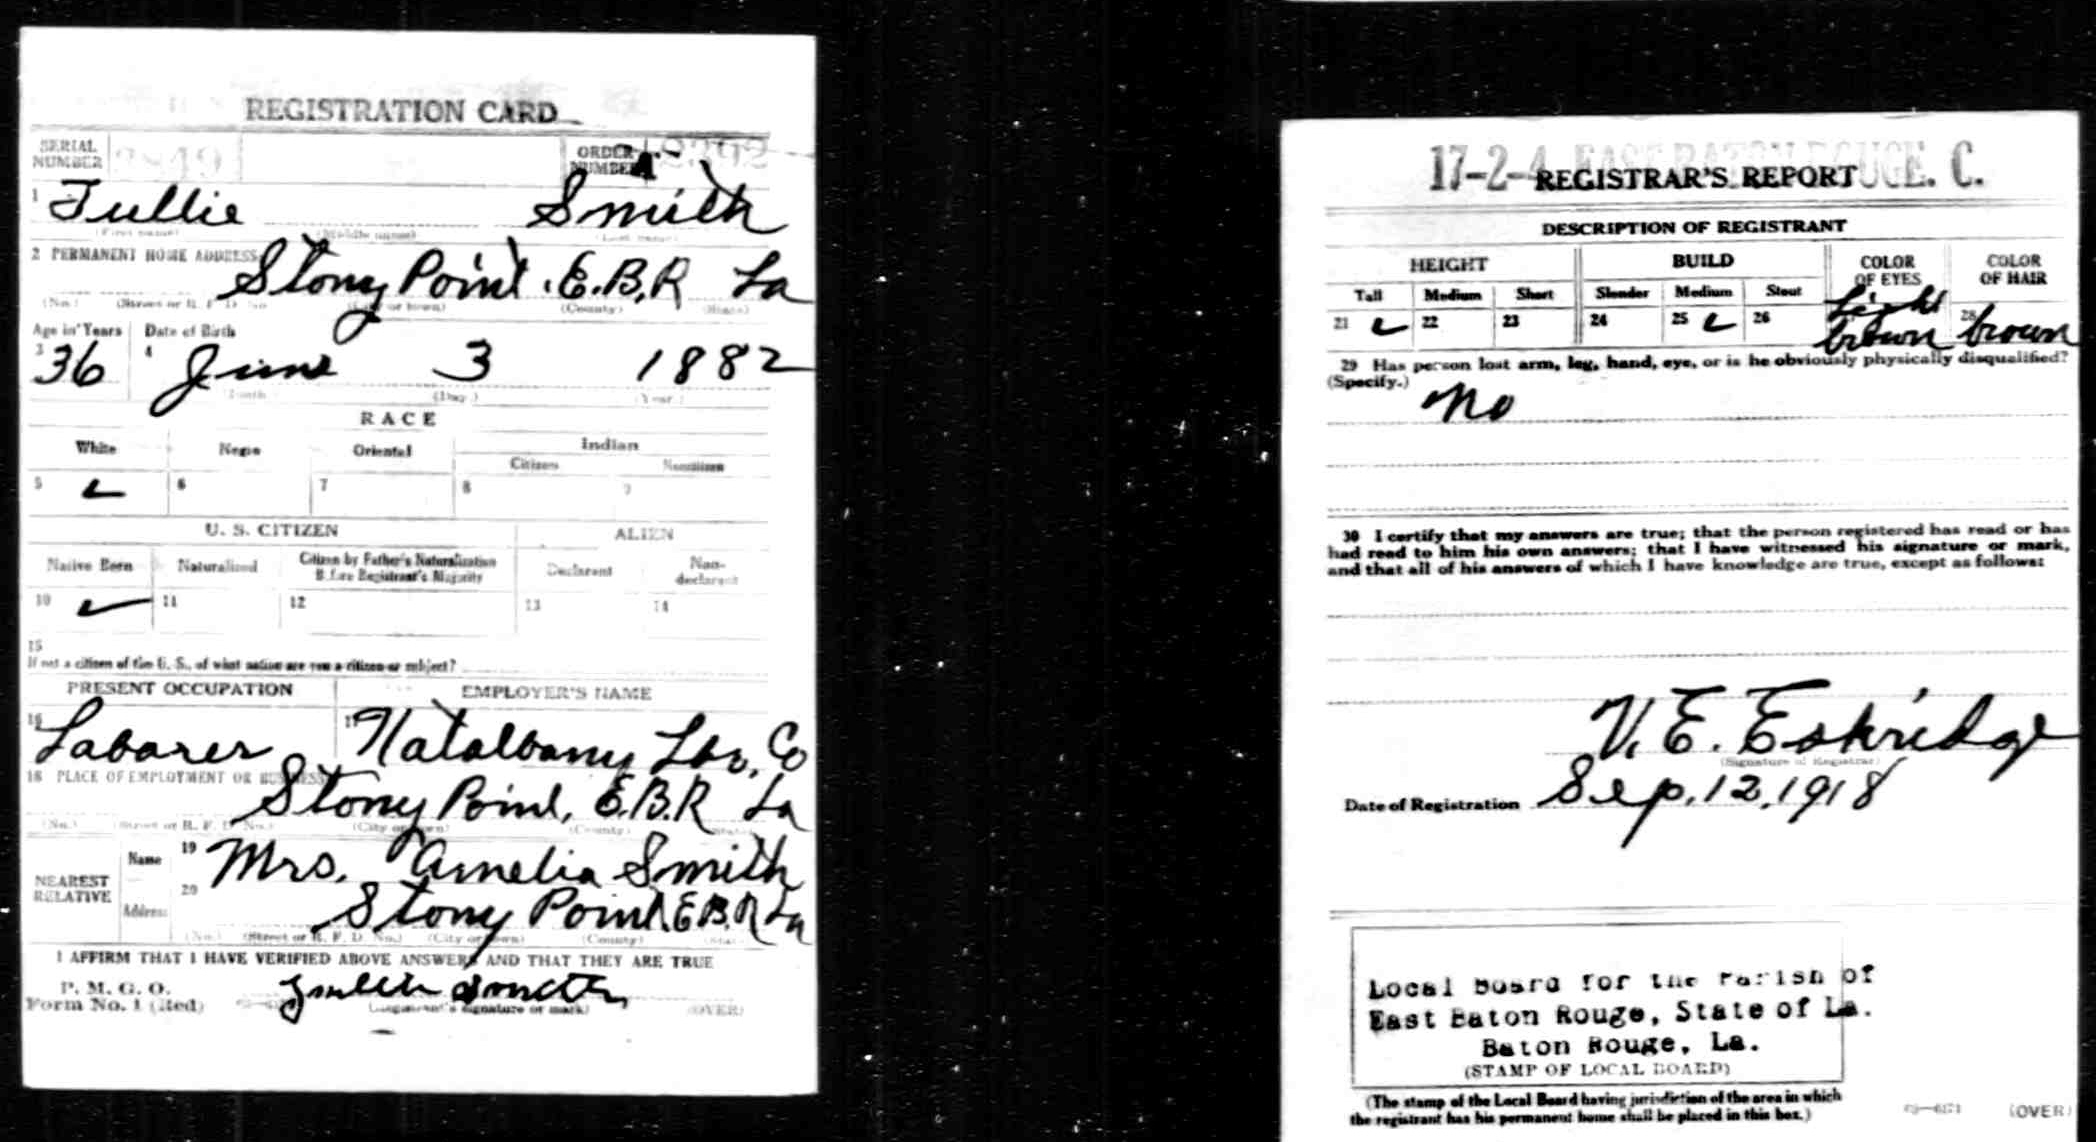 REGISTRATION CARD
SERIAL NUMBER 3849 ORDER NUMBER A
1 Tullie Smith
(First name) (Middle name) (Last name)
2 PERMANENT HOME ADDRESS
Stony Point. E.B.R La
(No.) (Street or R. F. D. No.) (City or town) (County) (State)
Age in Years Date of Birth
3 36 4 June 3 1882
(Month) (Day) (Year)
RACE
White Negro Oriental Indian
Citizen Noncitizen
5 6 7 8 9
U. S. CITIZEN ALIEN
Native Born Naturalized Citizen by Father's Naturalization Before Registrant's Majority Declarant Non-declarant
10 11 12 13 14
15
If not a citizen of the U. S., of what nation are you a citizen or subject?
PRESENT OCCUPATION EMPLOYER'S NAME
16 Labarer 17 Natalbany Lbr. Co
18 PLACE OF EMPLOYMENT OR BUSINESS
Stony Point, E.B.R La
(No.) (Street or R. F. D. No.) (City or town) (County) (State)
NEAREST RELATIVE Name 19 Mrs. Amelia Smith
Address 20 Stony Point E.B.R La
(No.) (Street or R. F. D. No.) (City or town) (County) (State)
I AFFIRM THAT I HAVE VERIFIED ABOVE ANSWERS AND THAT THEY ARE TRUE
P. M. G. O.
Form No. 1 (Red) (Registrant's signature or mark) (OVER)
17-2-4 EAST BATON ROUGE. C.
REGISTRAR'S REPORT
DESCRIPTION OF REGISTRANT
HEIGHT BUILD COLOR OF EYES COLOR OF HAIR
Tall Medium Short Slender Medium Stout
21 22 23 24 25 26 Light brown 28 brown
29 Has person lost arm, leg, hand, eye, or is he obviously physically disqualified?
(Specify.)
No
30 I certify that my answers are true; that the person registered has read or has
had read to him his own answers; that I have witnessed his signature or mark,
and that all of his answers of which I have knowledge are true, except as follows:
V. E. Eskridge
(Signature of Registrar)
Date of Registration Sep. 12, 1918
Local Board for the Parish of
East Baton Rouge, State of La.
Baton Rouge, La.
(STAMP OF LOCAL BOARD)
(The stamp of the Local Board having jurisdiction of the area in which
the registrant has his permanent home shall be placed in this box.)
(OVER)